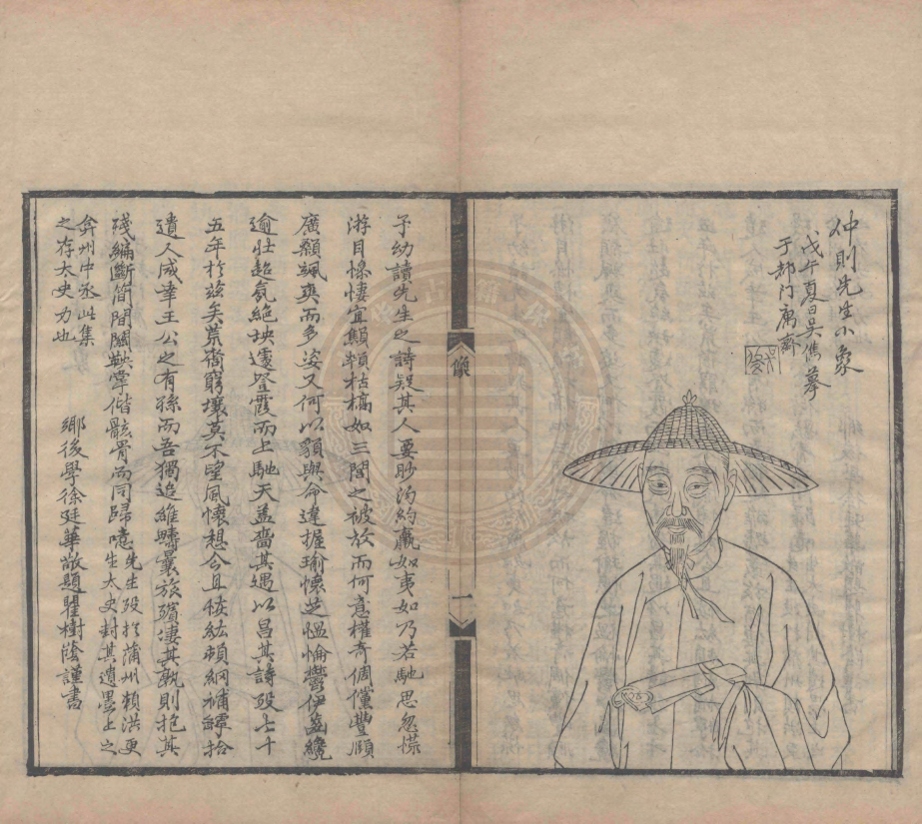 仲則先生小象
戊午夏日吳儁摹
于都門寓齋
像
一
予幼讀先生之詩疑其人要眇汋約羸如夷如乃若馳思忽慌
游目慘悽宜顦顇枯槁如三閭之被放而何意權奇倜儻豐頤
廣顙颯爽而多姿又何以額與命違握瑜懷芝慍惀鬱伊齒纔
逾壯超氛絕埃遽登霞而上馳天蓋嗇其遇以昌其詩歿七十
五年於茲矣荒裔窮壤莫不望風懷想今且恢紘頓綱補罅拾
遺人咸幸王公之有孫而吾獨追維疇曩旅殯悽其孰則抱其
殘編斷簡間關鞅掌偕骸骨而同歸噫先生歿於蒲州賴洪更
生太史封其遺墨上之
弇州中丞此集
之存太史力也
鄉後學徐廷華敬題瞿樹蔭謹書